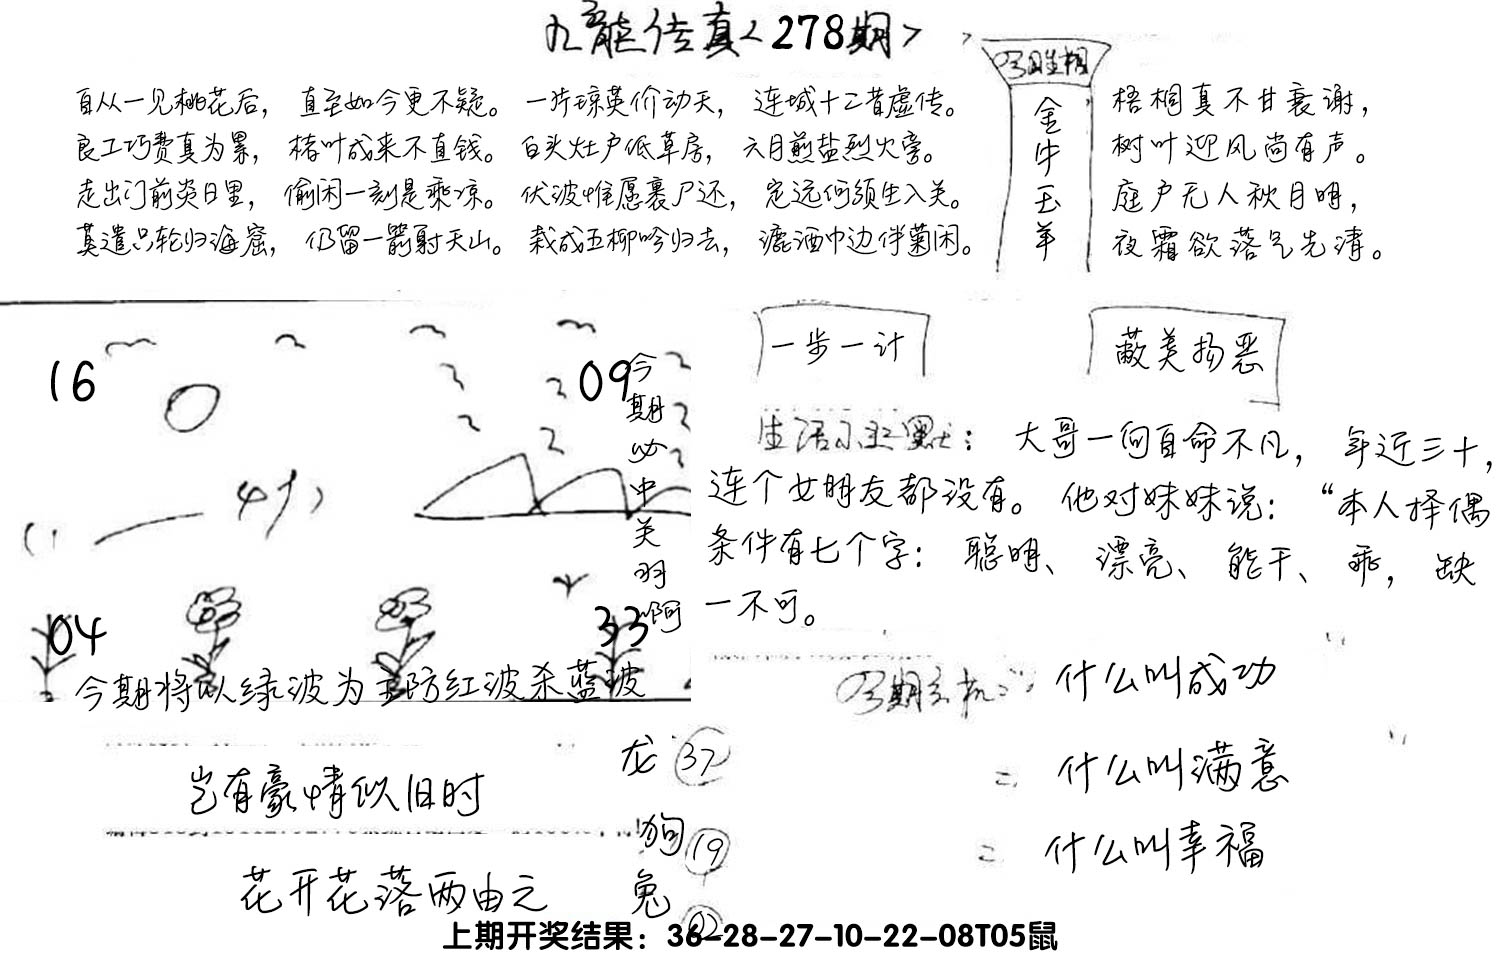 九龙传真<278期>
今期生相
金牛玉羊
自从一见桃花后， 直至如今更不疑。 一片琼英价动天， 连城十二昔虚传。
良工巧费真为累， 楮叶成来不直钱。 白头灶户低草房， 六月煎盐烈火旁。
走出门前炎日里， 偷闲一刻是乘凉。 伏波惟愿裹尸还， 定远何须生入关。
莫遣只轮归海窟， 仍留一箭射天山。 栽成五柳吟归去， 漉酒巾边伴菊闲。
梧桐真不甘衰谢，
树叶迎风尚有声。
庭户无人秋月明，
夜霜欲落气先清。
16
09
04
33
今期必中关羽啊
今期将以绿波为主防红波杀蓝波
一步一计
蔽美扬恶
生活小幽默： 大哥一向自命不凡， 年近三十，
连个女朋友都没有。 他对妹妹说： “本人择偶
条件有七个字： 聪明、 漂亮、 能干、 乖， 缺
一不可。
今期玄机 什么叫成功
= 什么叫满意
= 什么叫幸福
岂有豪情似旧时
花开花落两由之
龙 37
狗 19
兔 02
上期开奖结果：36-28-27-10-22-08T05鼠